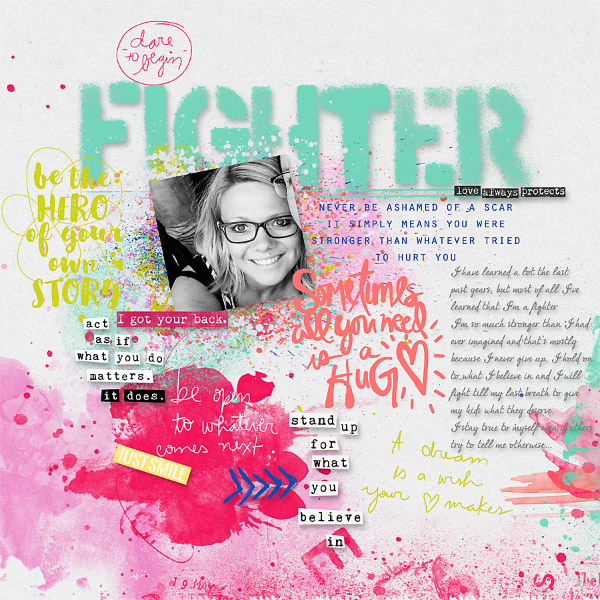 dare
to
begin
FIGHTER
love always protects
be the
HERO
of your
own
STORY
NEVER BE ASHAMED OF A SCAR
IT SIMPLY MEANS YOU WERE
STRONGER THAN WHATEVER TRIED
TO HURT YOU
I have learned a lot the last
past years, but most of all I've
learned that I'm a fighter
I'm so much stronger than I had
ever imagined and that's mostly
because I never give up, I hold on
to what I believe in and I will
fight till my last breath to give
my kids what they deserve.
I stay true to myself when others
try to tell me otherwise...
Sometimes
all you need
is a
HUG
I got your back.
act
as if
what you do
matters.
it does.
be open
to whatever
comes next.
JUST SMILE
stand up
for
what
you
believe
in
A dream
is a wish
your makes
19 MAY